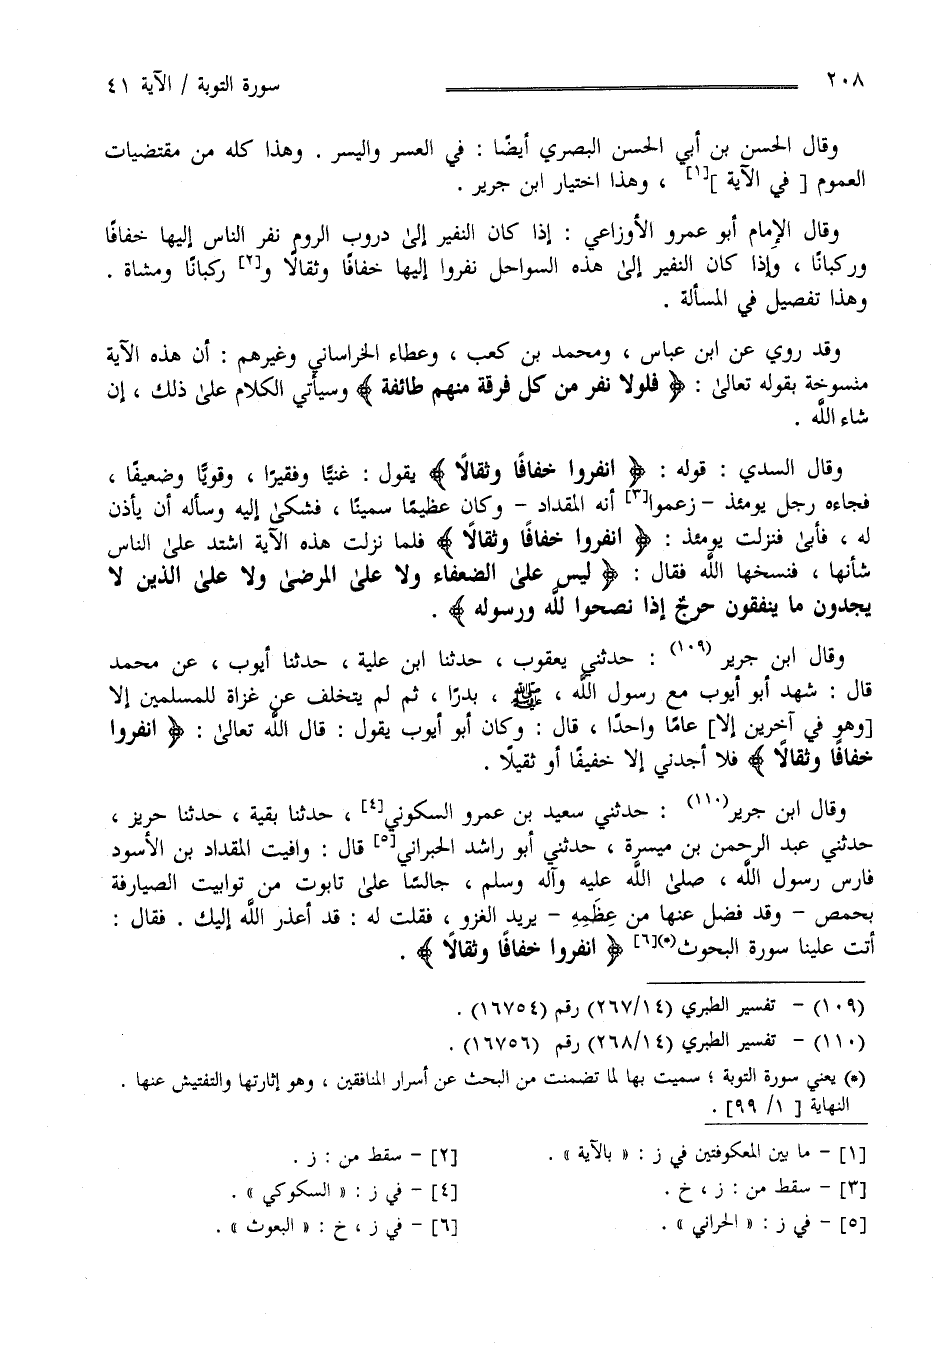 ٢٠٨
سورة التوبة / الآية ٤١
وقال الحسن بن أبي الحسن البصري أيضًا : في العسر واليسر . وهذا كله من مقتضيات
العموم [ في الآية ][١] ، وهذا اختيار ابن جرير .
وقال الإمام أبو عمرو الأوزاعي : إذا كان النفير إلىٰ دروب الروم نفر الناس إليها خفافًا
وركبانًا ، وإذا كان النفير إلىٰ هذه السواحل نفروا إليها خفافًا وثقالًا و[٢] ركبانًا ومشاة .
وهذا تفصيل في المسألة .
وقد روي عن ابن عباس ، ومحمد بن كعب ، وعطاء الخراساني وغيرهم : أن هذه الآية
منسوخة بقوله تعالىٰ : ﴿ فلولا نفر من كل فرقة منهم طائفة ﴾ وسيأتي الكلام علىٰ ذلك ، إن
شاء اللَّه .
وقال السدي : قوله : ﴿ انفروا خفافًا وثقالًا ﴾ يقول : غنيًّا وفقيرًا ، وقويًّا وضعيفًا ،
فجاءه رجل يومئذ – زعموا[٣] أنه المقداد – وكان عظيمًا سمينًا ، فشكىٰ إليه وسأله أن يأذن
له ، فأبىٰ فنزلت يومئذ : ﴿ انفروا خفافًا وثقالًا ﴾ فلما نزلت هذه الآية اشتد علىٰ الناس
شأنها ، فنسخها اللَّه فقال : ﴿ ليس علىٰ الضعفاء ولا علىٰ المرضىٰ ولا علىٰ الذين لا
يجدون ما ينفقون حرجٌ إذا نصحوا للَّه ورسوله ﴾ .
وقال ابن جرير (١٠٩) : حدثني يعقوب ، حدثنا ابن علية ، حدثنا أيوب ، عن محمد
قال : شهد أبو أيوب مع رسول اللَّه ، ﷺ ، بدرًا ، ثم لم يتخلف عن غزاة للمسلمين إلا
[وهو في آخرين إلا] عامًا واحدًا ، قال : وكان أبو أيوب يقول : قال اللَّه تعالىٰ : ﴿ انفروا
خفافًا وثقالًا ﴾ فلا أجدني إلا خفيفًا أو ثقيلًا .
وقال ابن جرير(١١٠) : حدثني سعيد بن عمرو السكوني[٤] ، حدثنا بقية ، حدثنا حريز ،
حدثني عبد الرحمن بن ميسرة ، حدثني أبو راشد الحبراني[٥] قال : وافيت المقداد بن الأسود
فارس رسول اللَّه ، صلىٰ اللَّه عليه وآله وسلم ، جالسًا علىٰ تابوت من توابيت الصيارفة
بحمص – وقد فضل عنها من عِظَمِهِ – يريد الغزو ، فقلت له : قد أعذر اللَّه إليك . فقال :
أتت علينا سورة البحوث(*)[٦] ﴿ انفروا خفافًا وثقالًا ﴾ .
(١٠٩) – تفسير الطبري (٢٦٧/١٤) رقم (١٦٧٥٤) .
(١١٠) – تفسير الطبري (٢٦٨/١٤) رقم (١٦٧٥٦) .
(*) يعني سورة التوبة ؛ سميت بها لما تضمنت من البحث عن أسرار المنافقين ، وهو إثارتها والتفتيش عنها .
النهاية [ ١/ ٩٩] .
[١] – ما بين المعكوفتين في ز : « بالآية » .
[٢] – سقط من : ز .
[٣] – سقط من : ز ، خ .
[٤] – في ز : « السكوكي » .
[٥] – في ز : « الحراني » .
[٦] – في ز ، خ : « البعوث » .